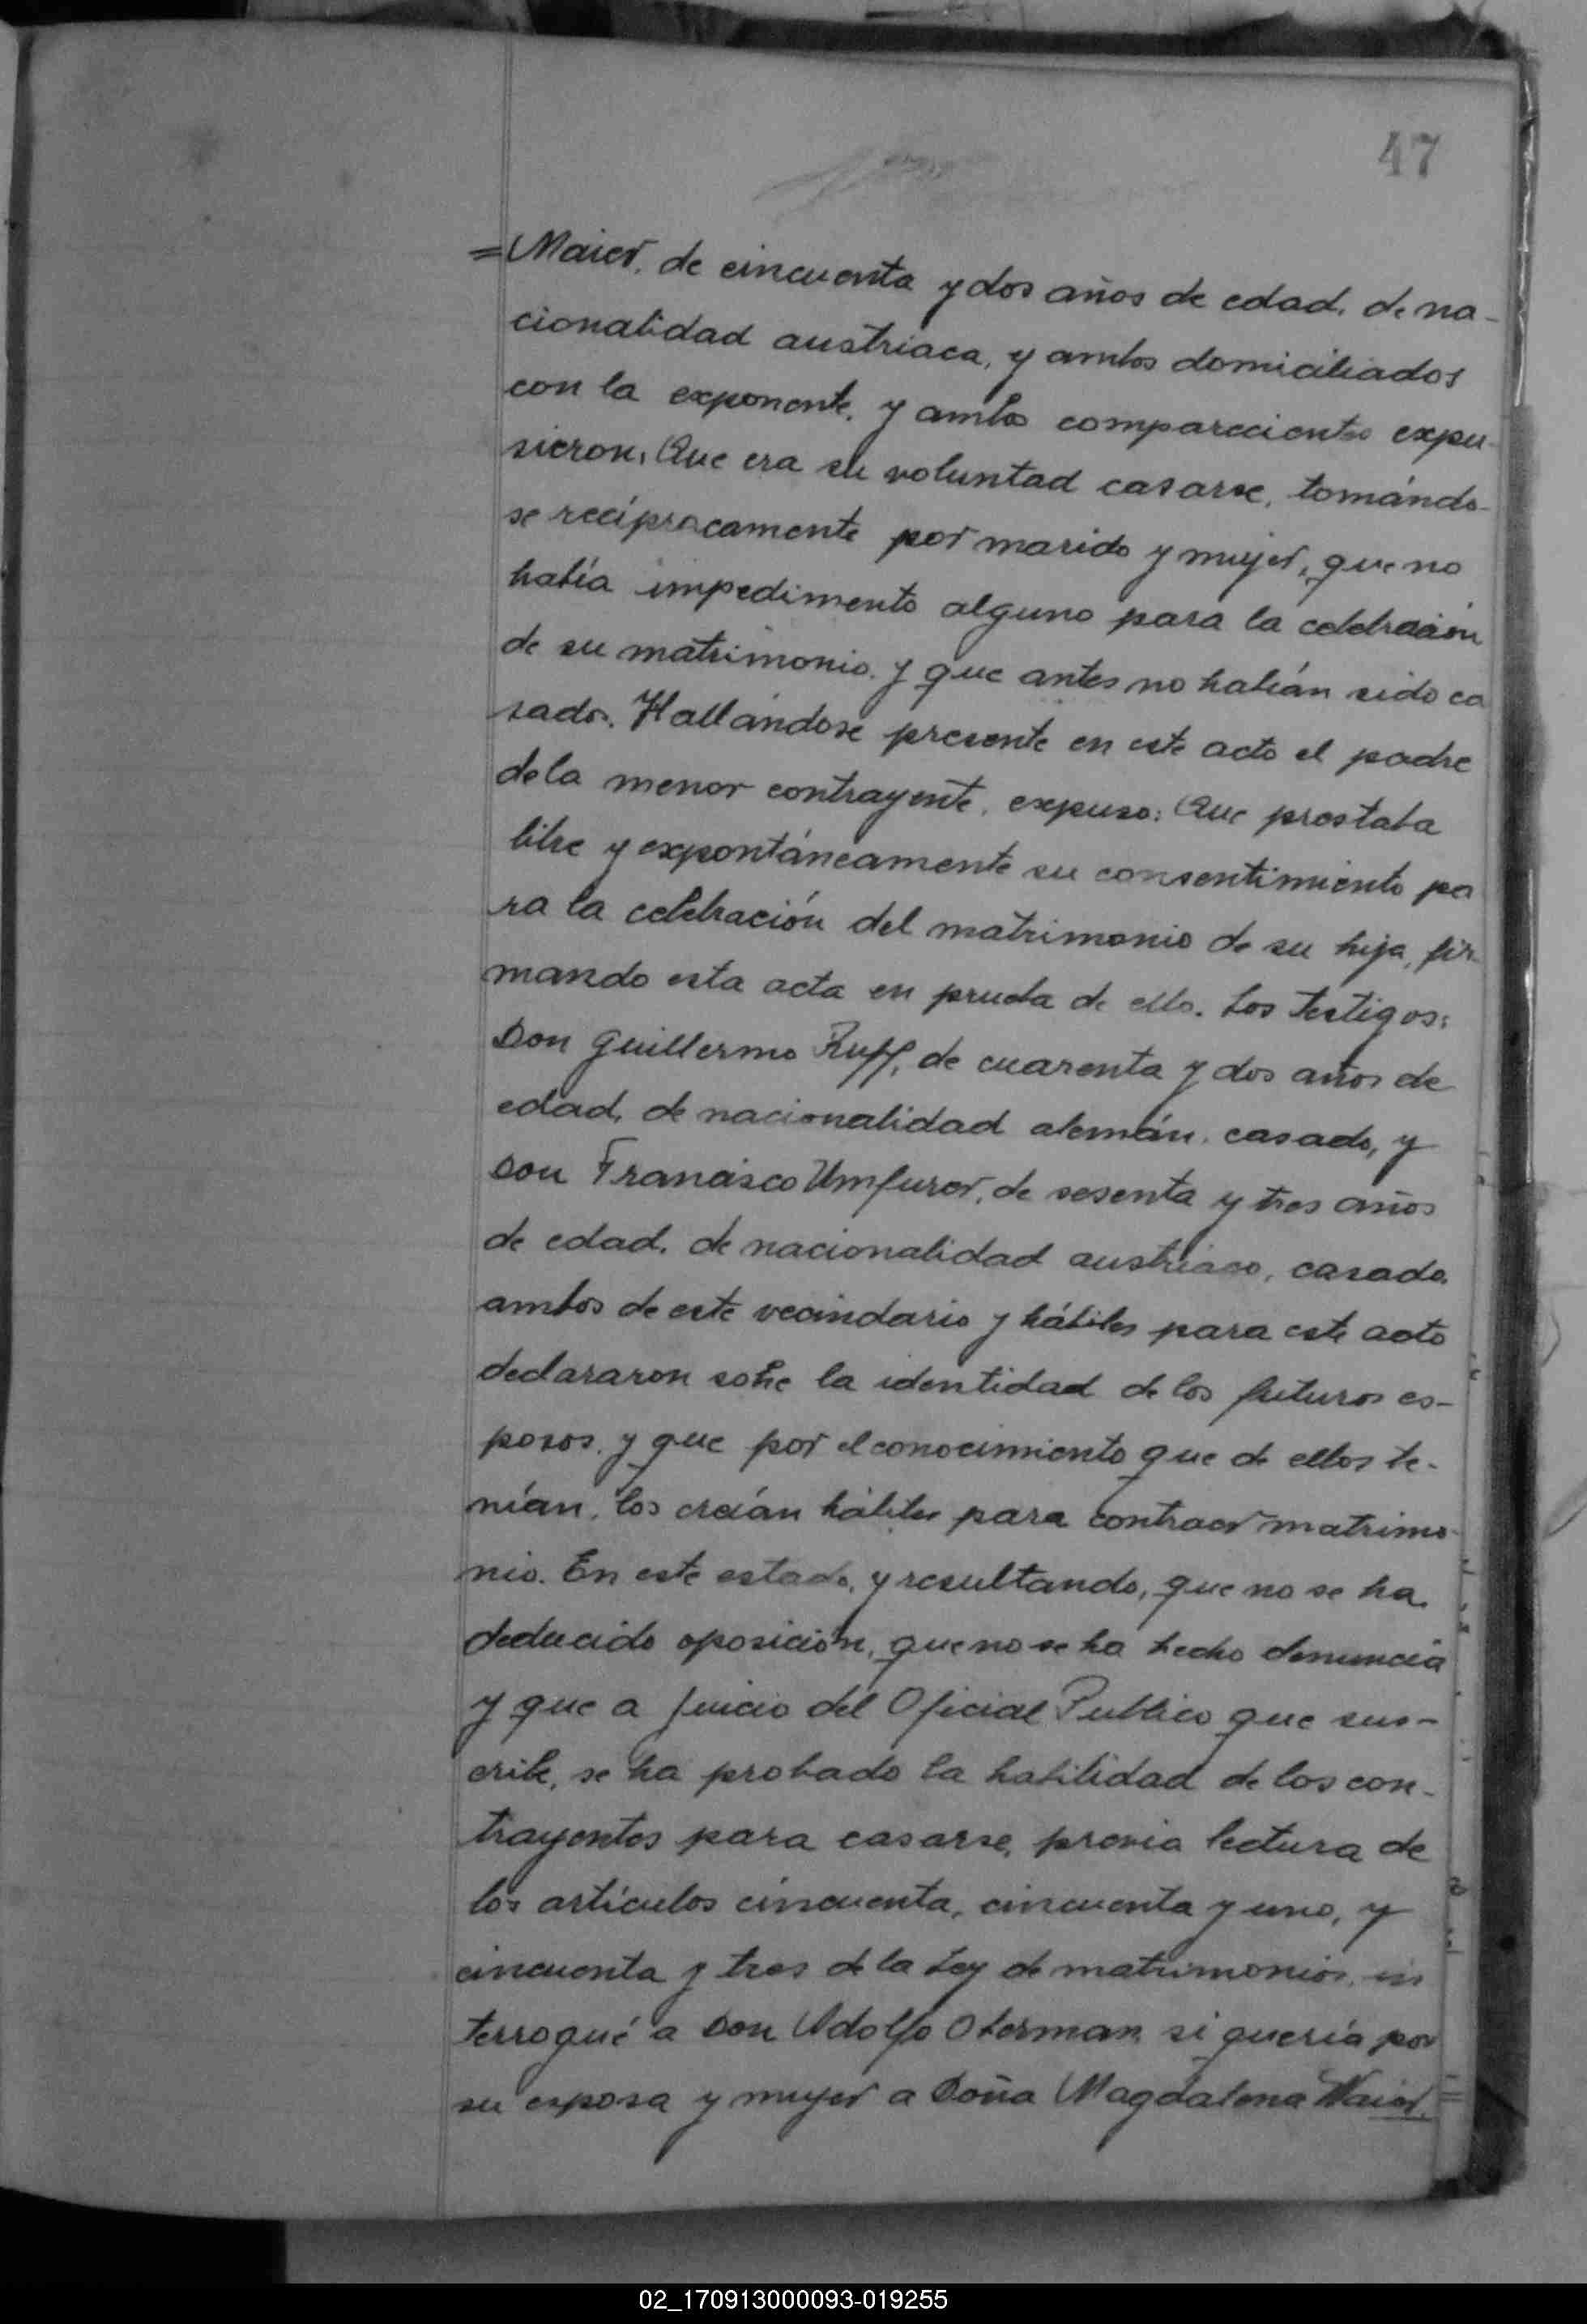 47
=Maier, de cincuenta y dos años de edad, de na-
cionalidad austriaca, y ambos domiciliados
con la exponente, y ambos comparecientes expu-
sieron: Que era su voluntad casarse, tomándo-
se recíprocamente por marido y mujer, que no
había impedimento alguno para la celebración
de su matrimonio, y que antes no habían sido ca
sados. Hallándose presente en este acto el padre
de la menor contrayente, expuso: Que prestaba
libre y expontáneamente su consentimiento pa
ra la celebración del matrimonio de su hija, fir-
mando esta acta en prueba de ello. Los testigos:
Don Guillermo Ruff, de cuarenta y dos años de
edad, de nacionalidad alemán, casado, y
Don Francisco Umfurer, de sesenta y tres años
de edad, de nacionalidad austriaco, casado,
ambos de este vecindario y hábiles para este acto
declararon sobre la identidad de los futuros es-
posos, y que por el conocimiento que de ellos te-
nían, los creían hábiles para contraer matrimo-
nio. En este estado, y resultando, que no se ha
deducido oposición, que no se ha hecho denuncia
y que a juicio del Oficial Publico que sus-
cribe, se ha probado la habilidad de los con-
trayentes para casarse, previa lectura de
los artículos cincuenta, cincuenta y uno, y
cincuenta y tres de la Ley de matrimonios, in
terrogué a Don Adolfo Oberman si quería por
su esposa y mujer a Doña Magdalena Maier, =
02_170913000093-019255